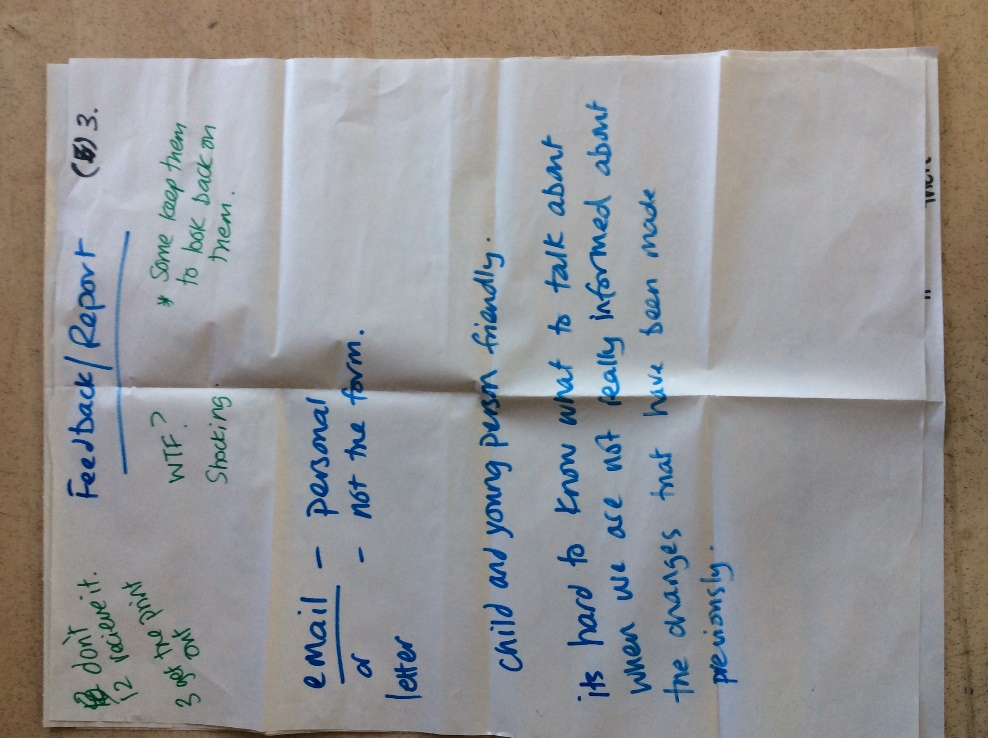 Feedback/Report
(5) 3.
don't
12 recieve it.
3 get the print
out
WTF?
Shocking.
* Some keep them
to look back on
them.
email - personal
or - not the form.
letter
child and young person friendly.
its hard to know what to talk about
when we are not really informed about
the changes that have been made
previously.